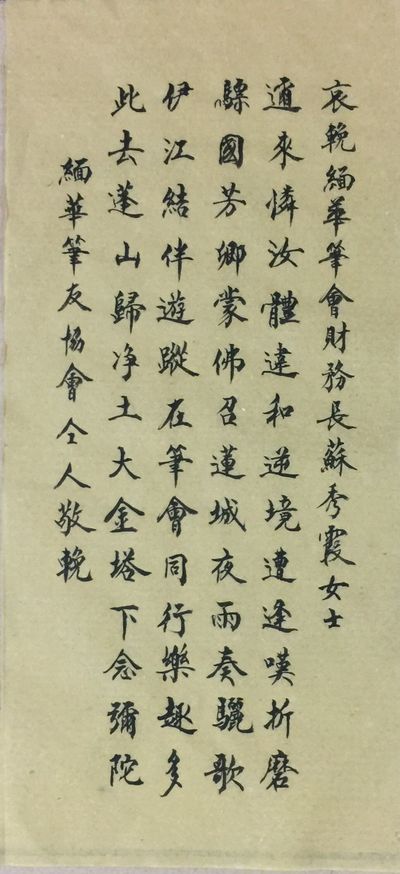 哀輓緬華筆會財務長蘇秀霞女士
邇來憐汝體違和逆境遭逢嘆折磨
驃國芳鄉蒙佛召蓮城夜雨奏驪歌
伊江結伴遊蹤在筆會同行樂趣多
此去蓬山歸净土大金塔下念彌陀
緬華筆友協會仝人敬輓